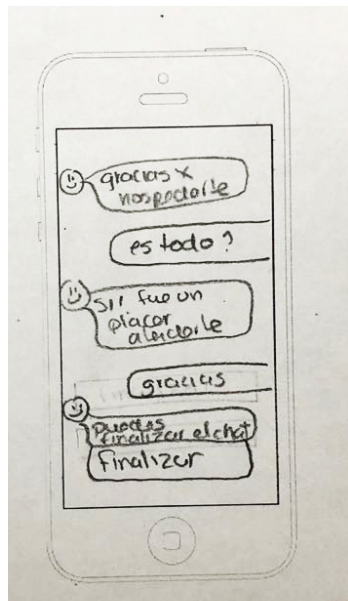 gracias x
es todo?
Sii fue un
placer
atenderle
gracias
puedes
finalizar el chat
Finalizar